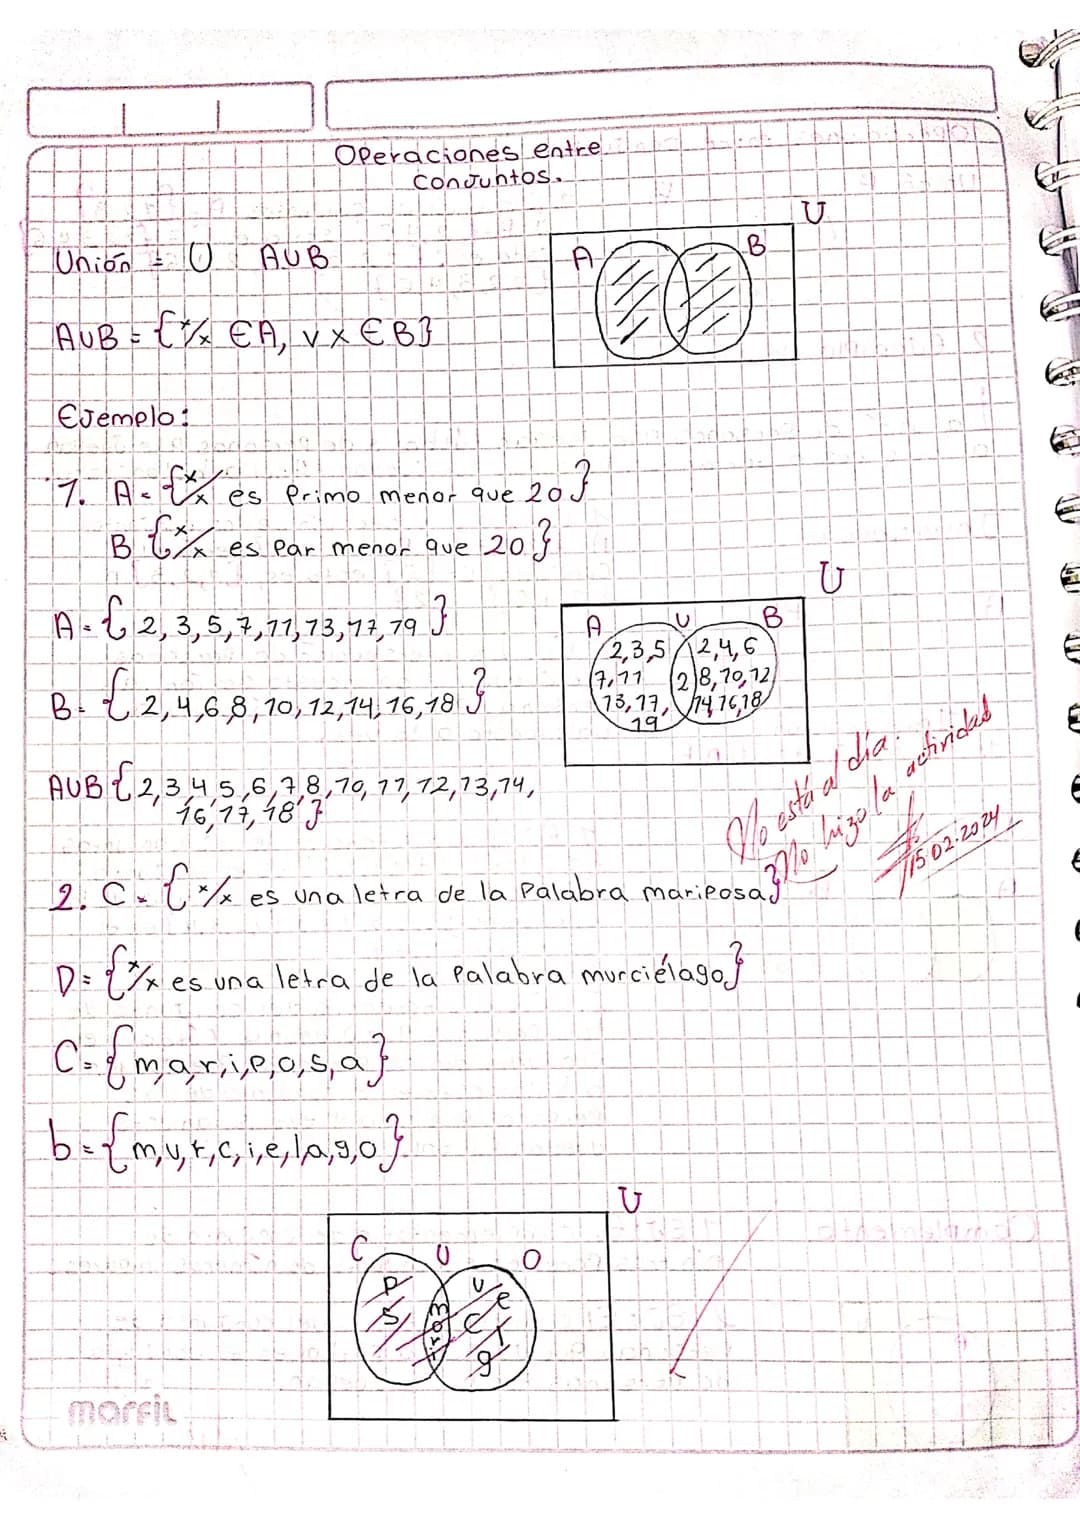 Operaciones entre
Conjuntos.
U
Unión = U AUB
A B
AUB = {x/x ∈A, v x ∈B}
Ejemplo:
1. A = {x/x es Primo menor que 20}
B {x/x es Par menor que 20}
U
A = {2,3,5,7,11,13,17,19}
A U B
2,3,5 2,4,6
7,11 2 8,10,12
13,17, 14,16,18
19
B = {2,4,6,8,10,12,14,16,18}
AUB {2,3,4,5,6,7,8,10,11,12,13,14,
16,17,18}
No está al día.
No hizo la actividad
15.02.2024
2. C = {x/x es una letra de la Palabra mariposa}
D = {x/x es una letra de la Palabra murciélago}
C = {m,a,r,i,p,o,s,a}
b = {m,u,r,c,i,e,l,a,g,o}
U
C U O
P
S
m
o
a
r
i
u
e
c
l
g
marfil